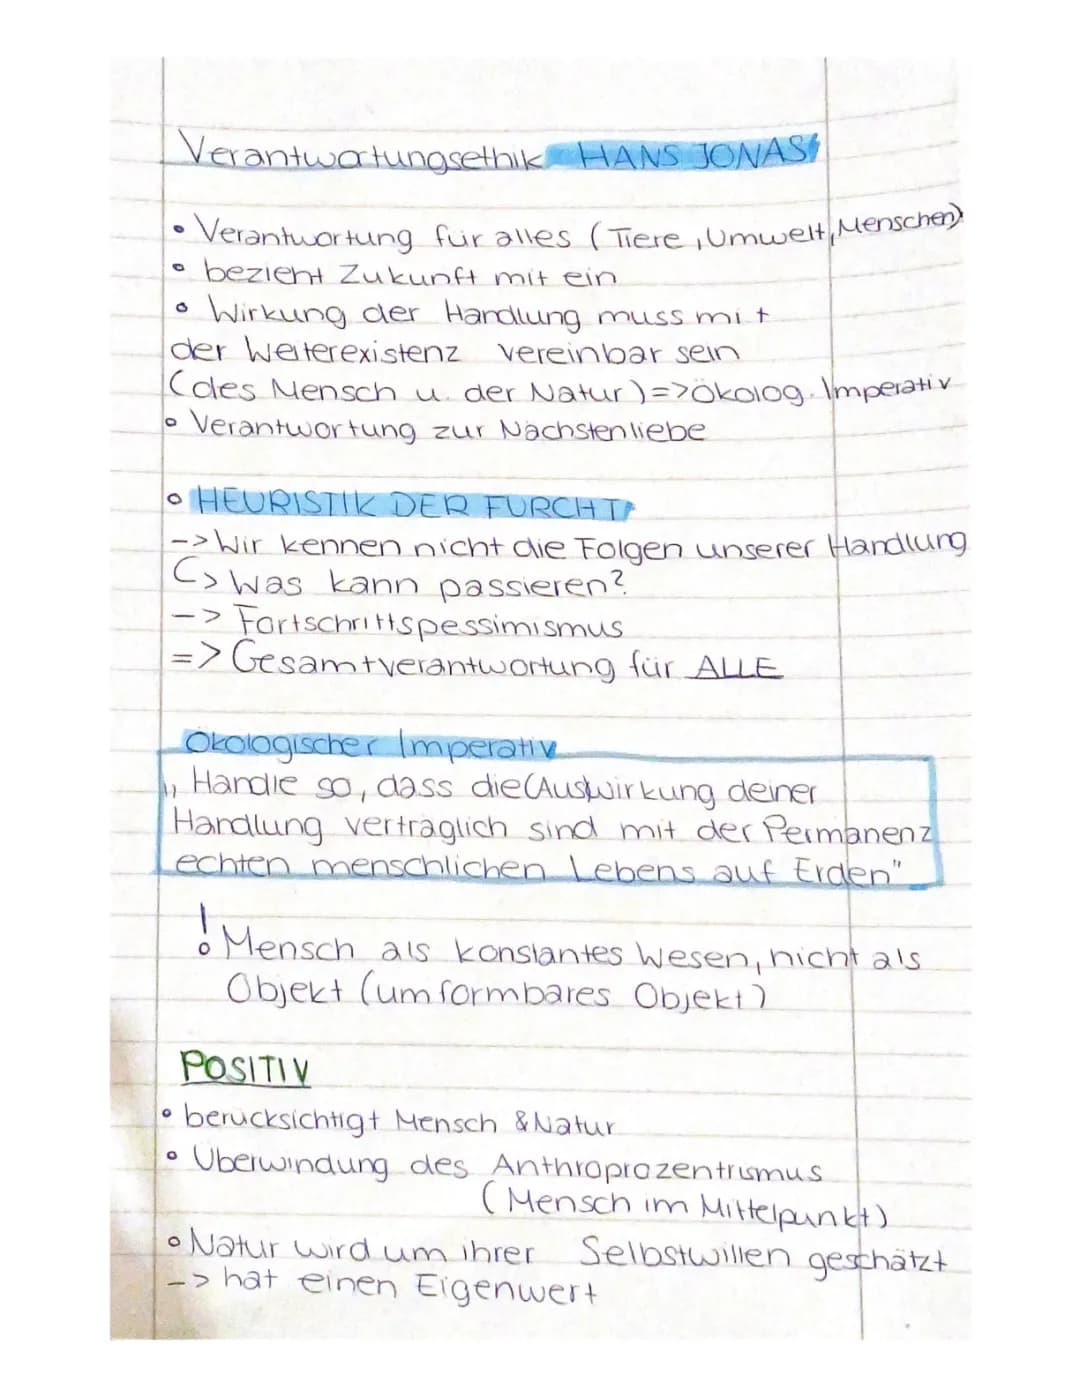 Verantwortungsethik HANS JONAS
• Verantwortung für alles (Tiere, Umwelt, Menschen)
• bezieht Zukunft mit ein
• Wirkung der Handlung muss mit
der Weiterexistenz vereinbar sein
(des Mensch u. der Natur) => ökolog. Imperativ
• Verantwortung zur Nächstenliebe
• HEURISTIK DER FURCHT
-> Wir kennen nicht die Folgen unserer Handlung
↳ Was kann passieren?
-> Fortschrittspessimismus
=> Gesamtverantwortung für ALLE
Ökologischer Imperativ
„Handle so, dass die Auswirkung deiner
Handlung verträglich sind mit der Permanenz
echten menschlichen Lebens auf Erden"
! Mensch als konstantes Wesen, nicht als
Objekt (umformbares Objekt)
POSITIV
• berücksichtigt Mensch & Natur
• Überwindung des Anthroprozentrismus
(Mensch im Mittelpunkt)
• Natur wird um ihrer Selbstwillen geschätzt
-> hat einen Eigenwert